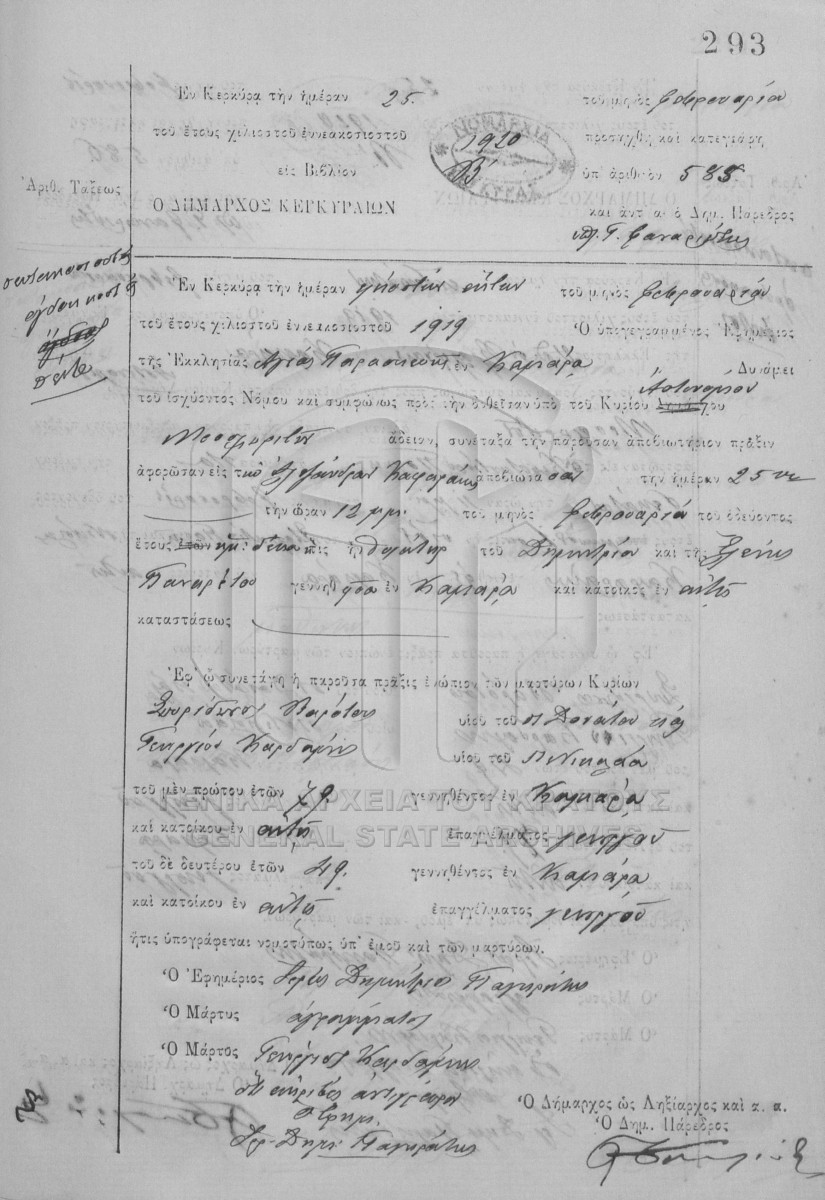 293
Ἐν Κερκύρᾳ τὴν ἡμέραν 25. τοῦ μηνὸς Φεβρουαρίου
τοῦ ἔτους χιλιοστοῦ ἐννεακοσιοστοῦ 1920 προσήχθη καὶ κατεγράφη
εἰς Βιβλίον Β' ὑπ' ἀριθμὸν 585
ΝΟΜΑΡΧΙΑ
Ἀριθ. Τάξεως
Ὁ ΔΗΜΑΡΧΟΣ ΚΕΡΚΥΡΑΙΩΝ καὶ ἀντ' αὐ ὁ Δημ. Πάρεδρος
πεντακοσιοστὴ
ὀγδοηκοστὴ
πέντε
Ἐν Κερκύρᾳ τὴν ἡμέραν εἰκοστὴν πέμπτην τοῦ μηνὸς Φεβρουαρίου
τοῦ ἔτους χιλιοστοῦ ἐννεακοσιοστοῦ 1919 Ὁ ὑπογεγραμμένος Ἐφημέριος
τῆς Ἐκκλησίας Ἁγίας Παρασκευῆς ἐν Καμάρᾳ Δυνάμει
τοῦ ἰσχύοντος Νόμου καὶ συμφώνως πρὸς τὴν δοθεῖσαν ὑπὸ τοῦ Κυρίου Ἀστυνόμου
ἄδειαν, συνέταξα τὴν παροῦσαν ἀποβιωτήριον πρᾶξιν
ἀφορῶσαν εἰς τὴν Ἀλεξάνδραν ἀποβιώσασαν τὴν ἡμέραν 25
τὴν ὥραν 12 μ.μ. τοῦ μηνὸς Φεβρουαρίου τοῦ ὁδεύοντος
ἔτους ἐτῶν θυγάτηρ τοῦ Δημητρίου καὶ τῆς Ἑλένης
Παναρέτου γεννηθεῖσα ἐν Καμάρᾳ καὶ κάτοικος ἐν αὐτῇ
καταστάσεως
Ἐφ' ᾧ συνετάγη ἡ παροῦσα πρᾶξις ἐνώπιον τῶν μαρτύρων Κυρίων
Σπυρίδωνος υἱοῦ τοῦ π Δονάτου καὶ
Γεωργίου Καρδάμη υἱοῦ τοῦ π Νικολάου
τοῦ μὲν πρώτου ἐτῶν 79. γεννηθέντος ἐν Καμάρᾳ
ΓΕΝΙΚΑ ΑΡΧΕΙΑ ΤΟΥ ΚΡΑΤΟΥΣ
καὶ κατοίκου ἐν αὐτῇ ἐπαγγέλματος γεωργοῦ
GENERAL STATE ARCHIVES
τοῦ δὲ δευτέρου ἐτῶν 49. γεννηθέντος ἐν Καμάρᾳ
καὶ κατοίκου ἐν αὐτῇ ἐπαγγέλματος γεωργοῦ
ἥτις ὑπογράφεται νομοτύπως ὑπ' ἐμοῦ καὶ τῶν μαρτύρων.
Ὁ Ἐφημέριος Ἱερεὺς Δημήτριος Παγκράτης
Ὁ Μάρτυς ἀγράμματος
Ὁ Μάρτυς Γεώργιος Καρδάμης
Ὅτι ἀκριβὲς ἀντίγραφον
Ὁ Ἐφημ.
Ἱερ. Δημ. Παγκράτης
Ὁ Δήμαρχος ὡς Ληξίαρχος καὶ α. α.
Ὁ Δημ. Πάρεδρος